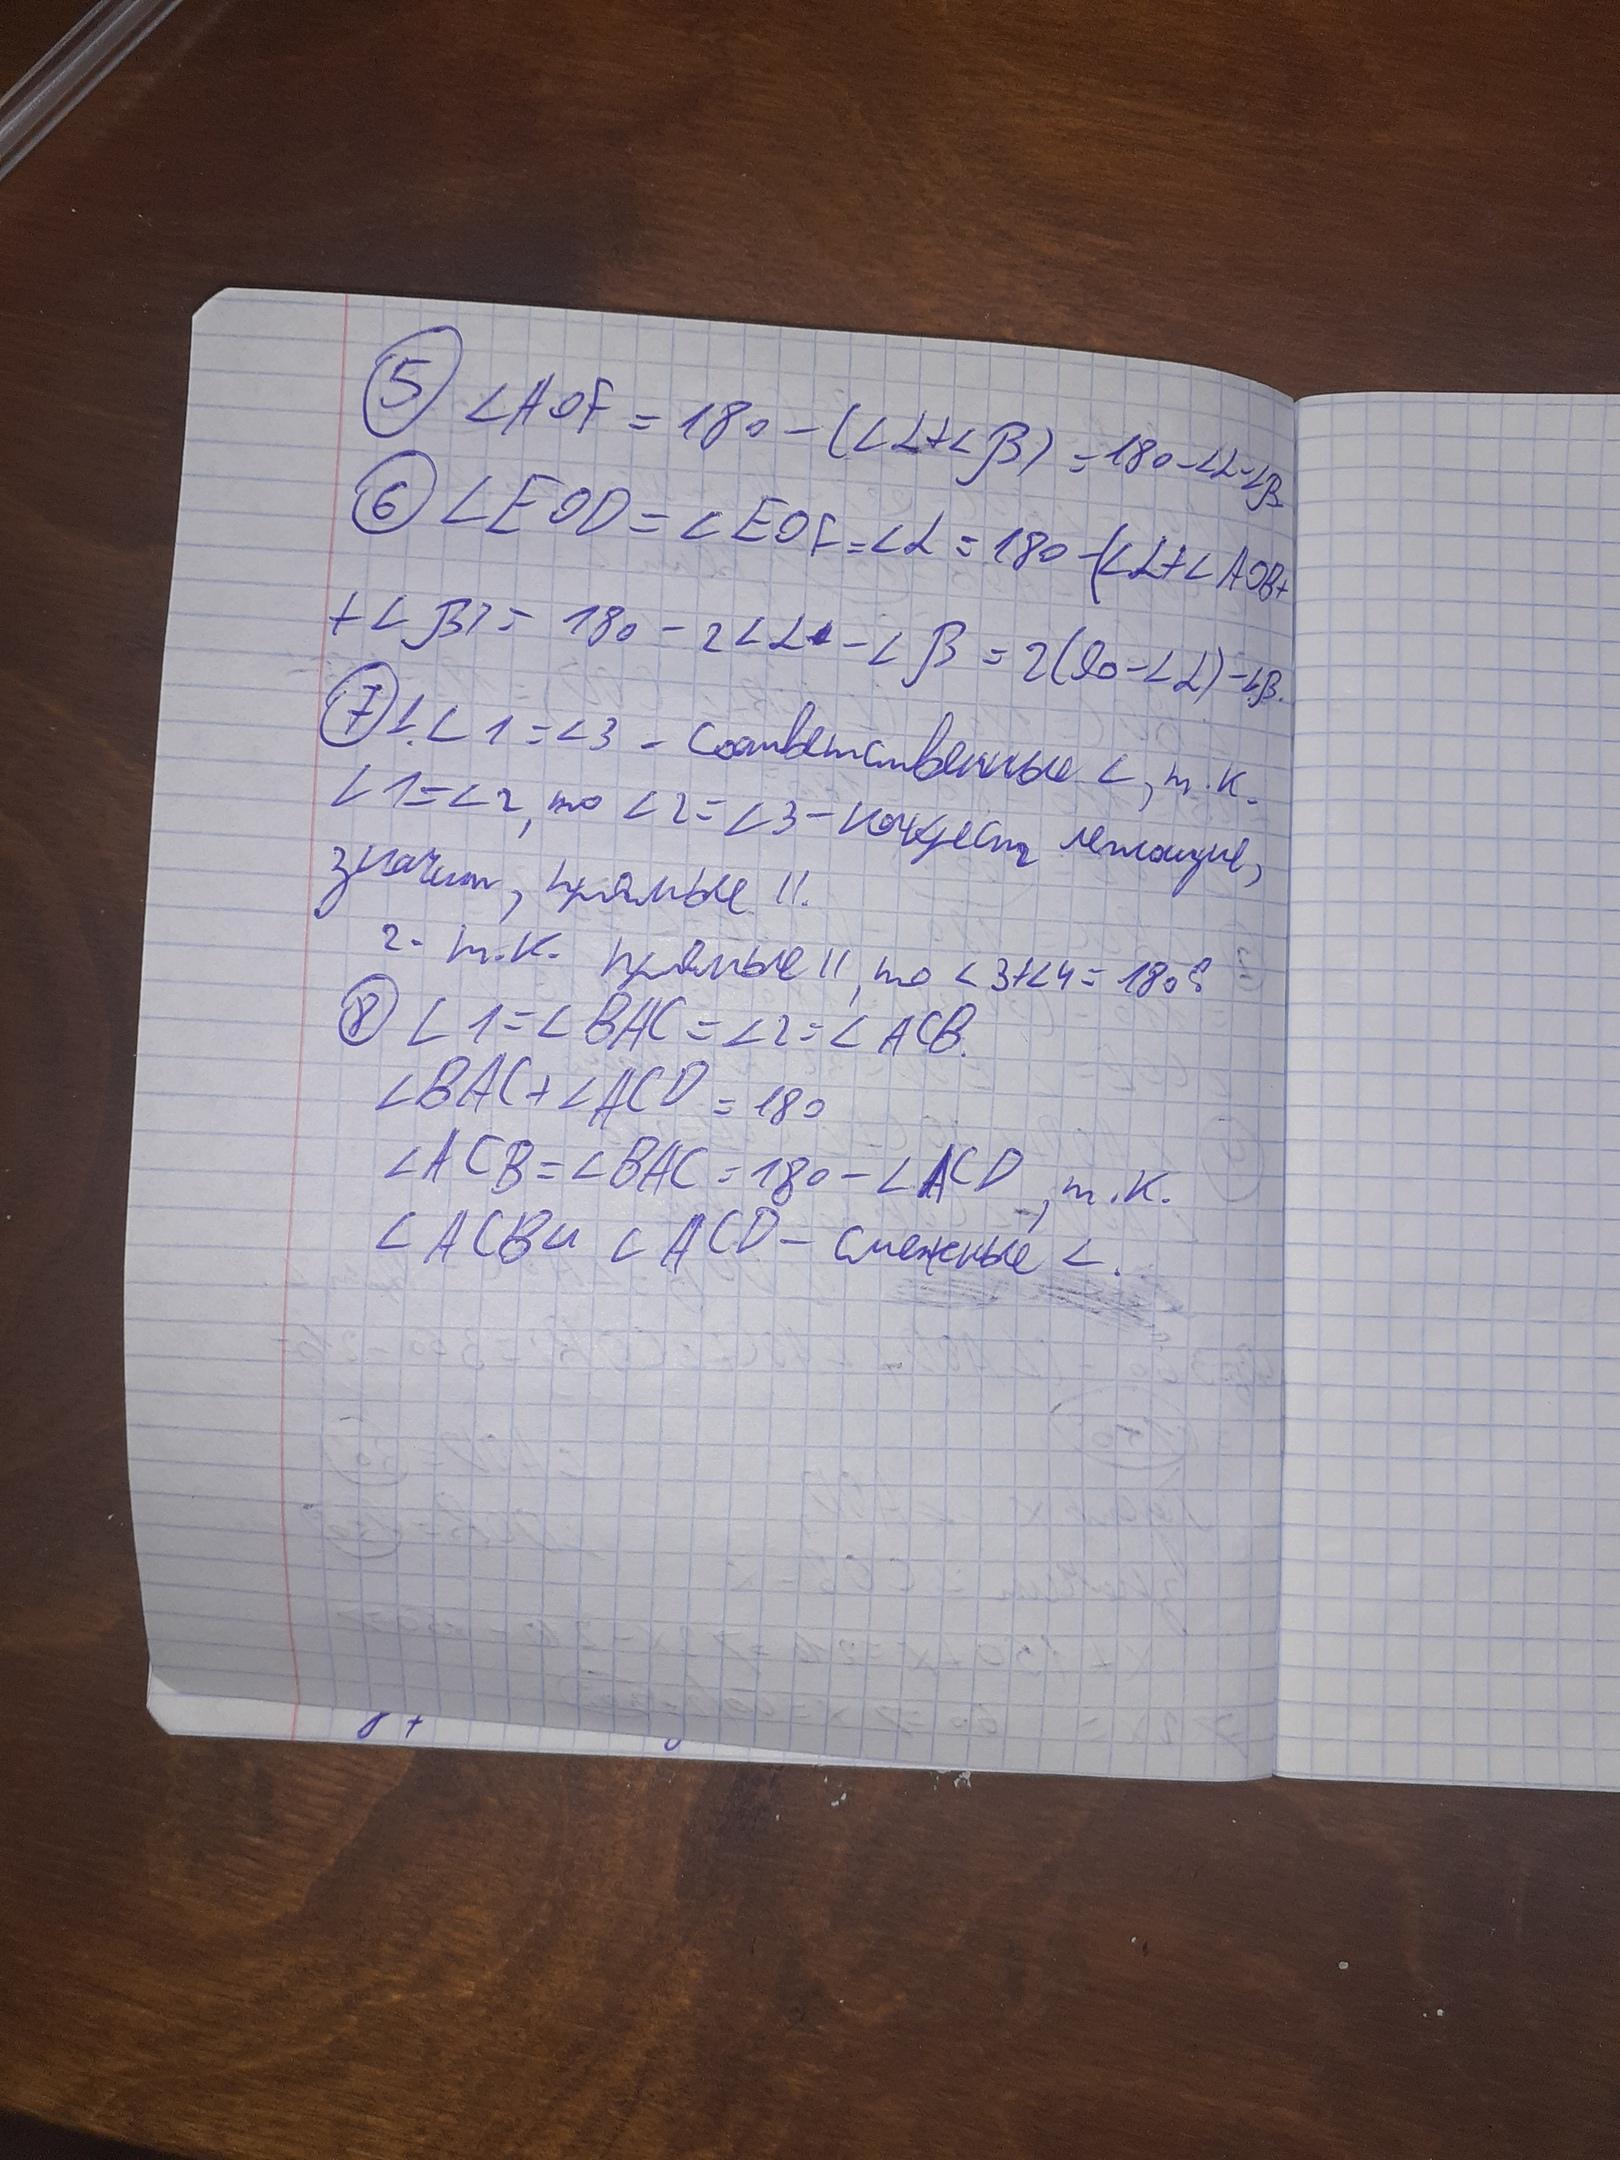 5 ∠AOF = 180 - (∠α+∠β) = 180-∠α-∠β
6 ∠EOD = ∠EOF = ∠α = 180 -(∠α+∠AOB+
+∠β) = 180 - 2∠α - ∠β = 2(90-∠α) -∠β.
7 1. ∠1 = ∠3 - соответственные ∠, т.к.
∠1=∠2, то ∠2=∠3 - накрест лежащие,
значит, прямые ||.
2. т.к. прямые ||, то ∠3+∠4 = 180°
8 ∠1=∠BAC=∠2=∠ACB.
∠BAC+∠ACD = 180
∠ACB=∠BAC=180-∠ACD, т.к.
∠ACB и ∠ACD - смежные ∠.